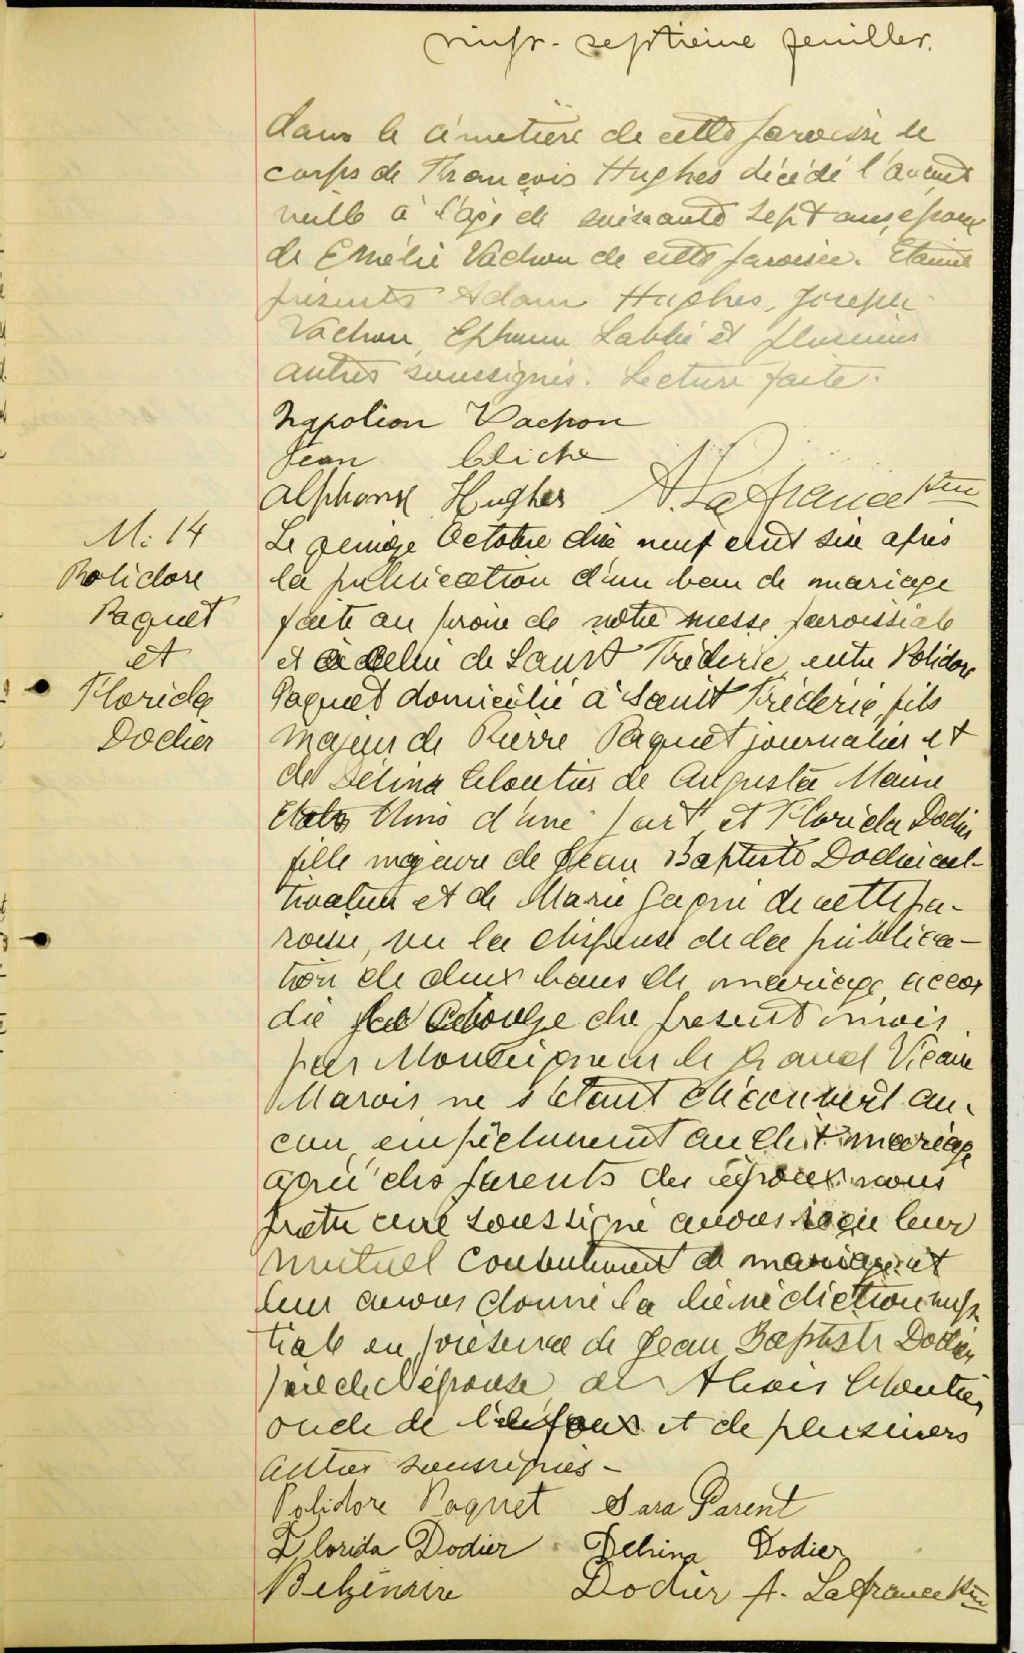 vingt-septième feuillet.
dans le cimetière de cette paroisse le
corps de François Hughes décédé l'avant
veille à l'age de soixante sept ans, époux
de Emélie Vachon de cette paroisse. Etaient
présents Adam Hughes, Joseph
Vachon, Ephrem Labbé et plusieurs
autres soussignés. Lecture faite.
Napoléon Vachon
Jean Cliche
Alphonse Hughes A. Lafrance Ptre
M: 14
Polidore
Paquet
et
Florida
Dodier
Le quinze Octobre dix neuf cent six après
la publication d'un ban de mariage
faite au prone de notre messe paroissiale
et à celui de Saint Fréderic, entre Polidore
Paquet domicilié à Saint Fréderic, fils
majeur de Pierre Paquet journalier et
de Délina Cloutier de Augusta Maine
Etats Unis d'une part, et Florida Dodier
fille majeure de Jean Baptiste Dodier cul-
tivateur et de Marie Gagné de cette pa-
roisse, vu la dispense de la publica-
tion de deux bans de mariage accor
dée le douze du present mois
par Monseigneur le Grand Vicaire
Marois, ne s'étant découvert au-
cun empêchement au dit mariage
agréé des parents des époux nous
pretre curé soussigné avons reçu leur
mutuel consentement de mariage et
leur avons donné la bénédiction nup-
tiale en présence de Jean Baptiste Dodier
père de l'épouse, de Alexis Cloutier
oncle de l'époux et de plusieurs
autres soussignés -
Polidore Paquet Sara Parent
Florida Dodier Delvina Dodier
Belzémire Dodier A. Lafrance Ptre